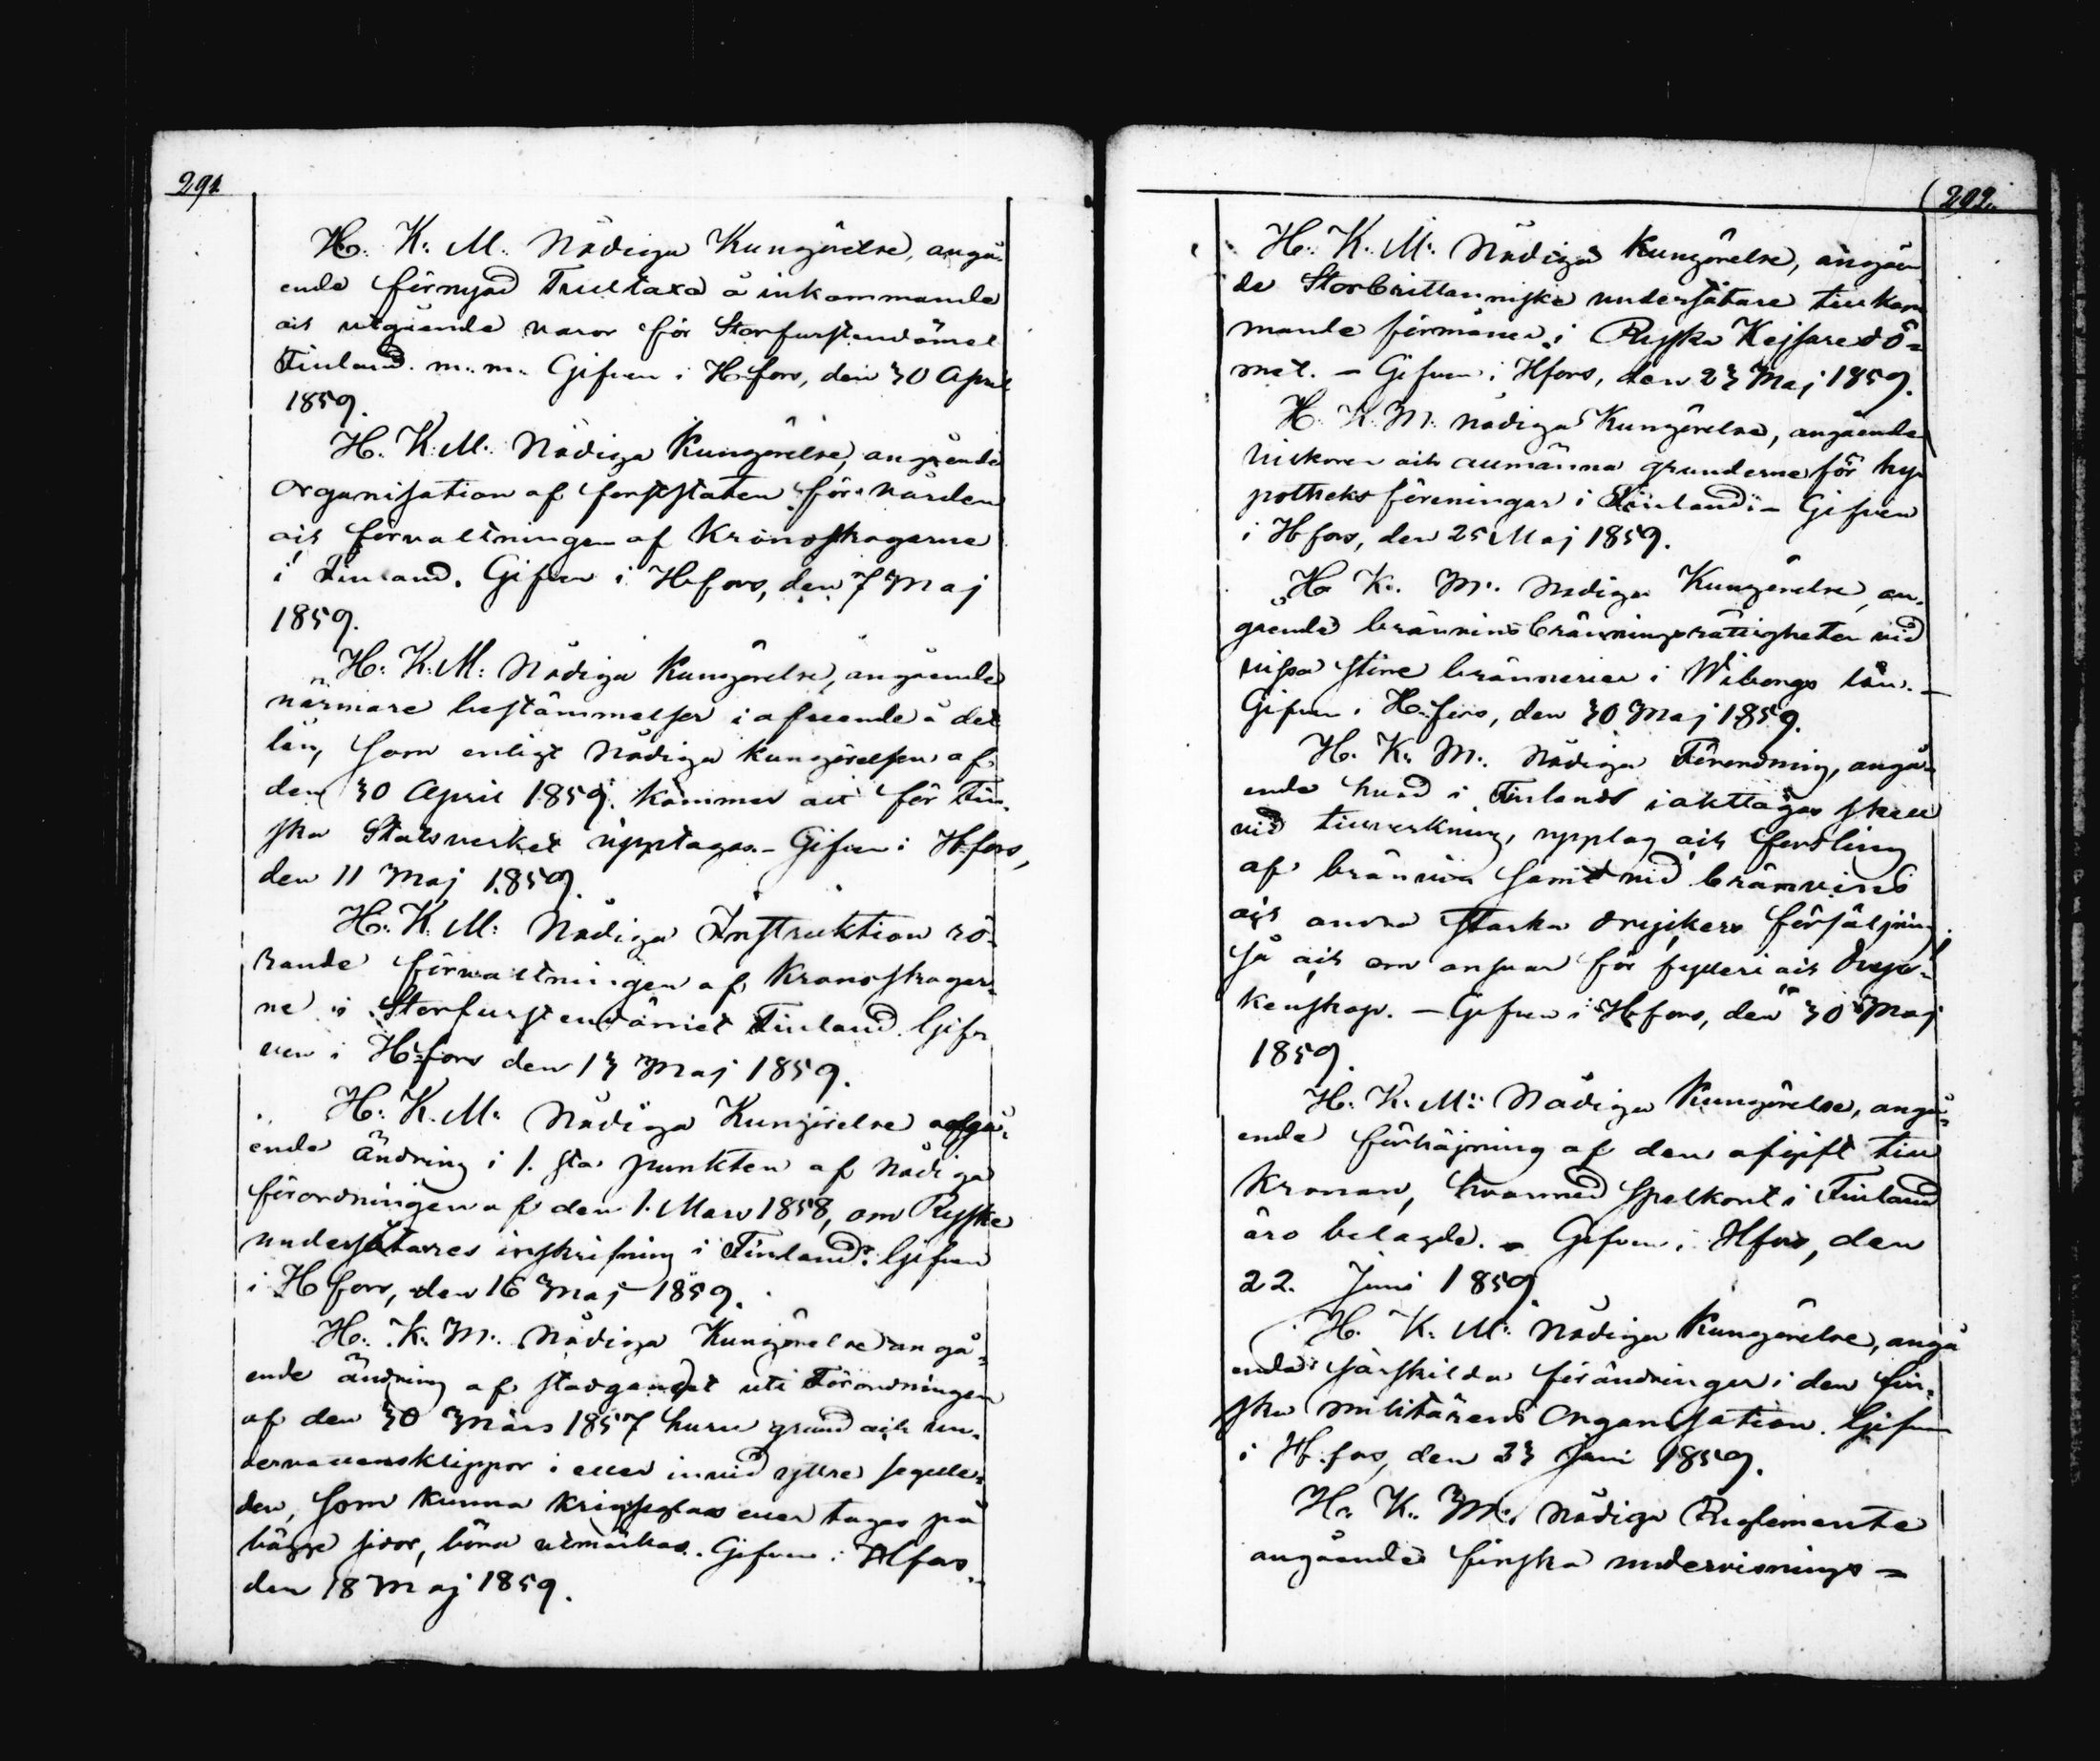 291.
H: K: M: Nådiga Kungörelse, angå-
ende förnyad Tulltaxa å inkommande
och utgående varor för Storfurstendömet
Finland. m. m. Gifven i H:fors, den 30 April
1859.
H. K: M: Nådiga Kungörelse, angående
organisation af forststaten för vården
och förvaltningen af Kronoskogarne
i Finland. Gifven i H:fors, den 7 Maj
1859.
H: K: M: Nådiga Kungörelse, angående
närmare bestämmelser i afseende å det
lån, som enligt Nådiga kungörelsen af
den 30 April 1859. kommer att för Fin-
ska Statsverket upptagas. - Gifven i H:fors,
den 11 Maj 1859.
H: K: M: Nådiga Instruktion rö-
rande förvaltningen af Kronoskogar-
ne i Storfurstendömet Finland. Gif-
ven i H:fors den 13 Maj 1859.
H: K. M: Nådiga Kungörelse angå-
ende ändring i 1. sta punkten af Nådiga
förordningen af den 1. Mars 1858, om Ryske
undersåtares inskrifning i Finland. Gifven
i H:fors, den 16 Maj 1859.
H: K: M: Nådiga Kungörelse angå-
ende ändring af stadgandet uti Förordningen
af den 30 Mars 1857 huru grund och un-
dervattensklippor i eller invid yttre segelle-
der, som kunna kringseglas eller tagas på
bägge sidor, böra utmärkas. Gifven i H:fors.
den 18 Maj 1859.
292.
H: K: M: Nådiga Kungörelse, angåen
de Storbrittanniske undersåtare tillkom
mande förmåner i Ryska Kejsaredö-
met. - Gifven i H:fors, den 23 Maj 1859.
H: K: M: Nådiga Kungörelse, angående
vilkoren och allmänna grunderne för hy-
potheksföreningar i Finland. - Gifven
i H:fors, den 25 Maj 1859.
H: K: M: Nådiga Kungörelse, an-
gående bränvinsbränningsrättigheten vid
vissa större brännerier i Wiborgs län. -
Gifven i H:fors, den 30 Maj 1859.
H. K: M: Nådiga Förordning, angå-
ende hvad i Finland iakttagas skall
vid tillverkning, upplag och forsling
af bränvin samt vid bränvins
och andra starka dryckers försäljning
så och om ansvar för fylleri och dryc-
kenskap. - Gifven i H:fors, den 30 Maj
1859.
H: K: M: Nådiga Kungörelse, angå-
ende förhöjning af den afgift till
Kronan, hvarmed spelkort i Finland
äro belagde. - Gifven i H:fors, den
22. Juni 1859.
H. K: M: Nådiga Kungörelse, angå
ende särskilda förändringar i den fin-
ska militärens Organisation. Gifven
i H:fors, den 23 Juni 1859.
H: K: M: Nådiga Reglemente
angående finska undervisnings-